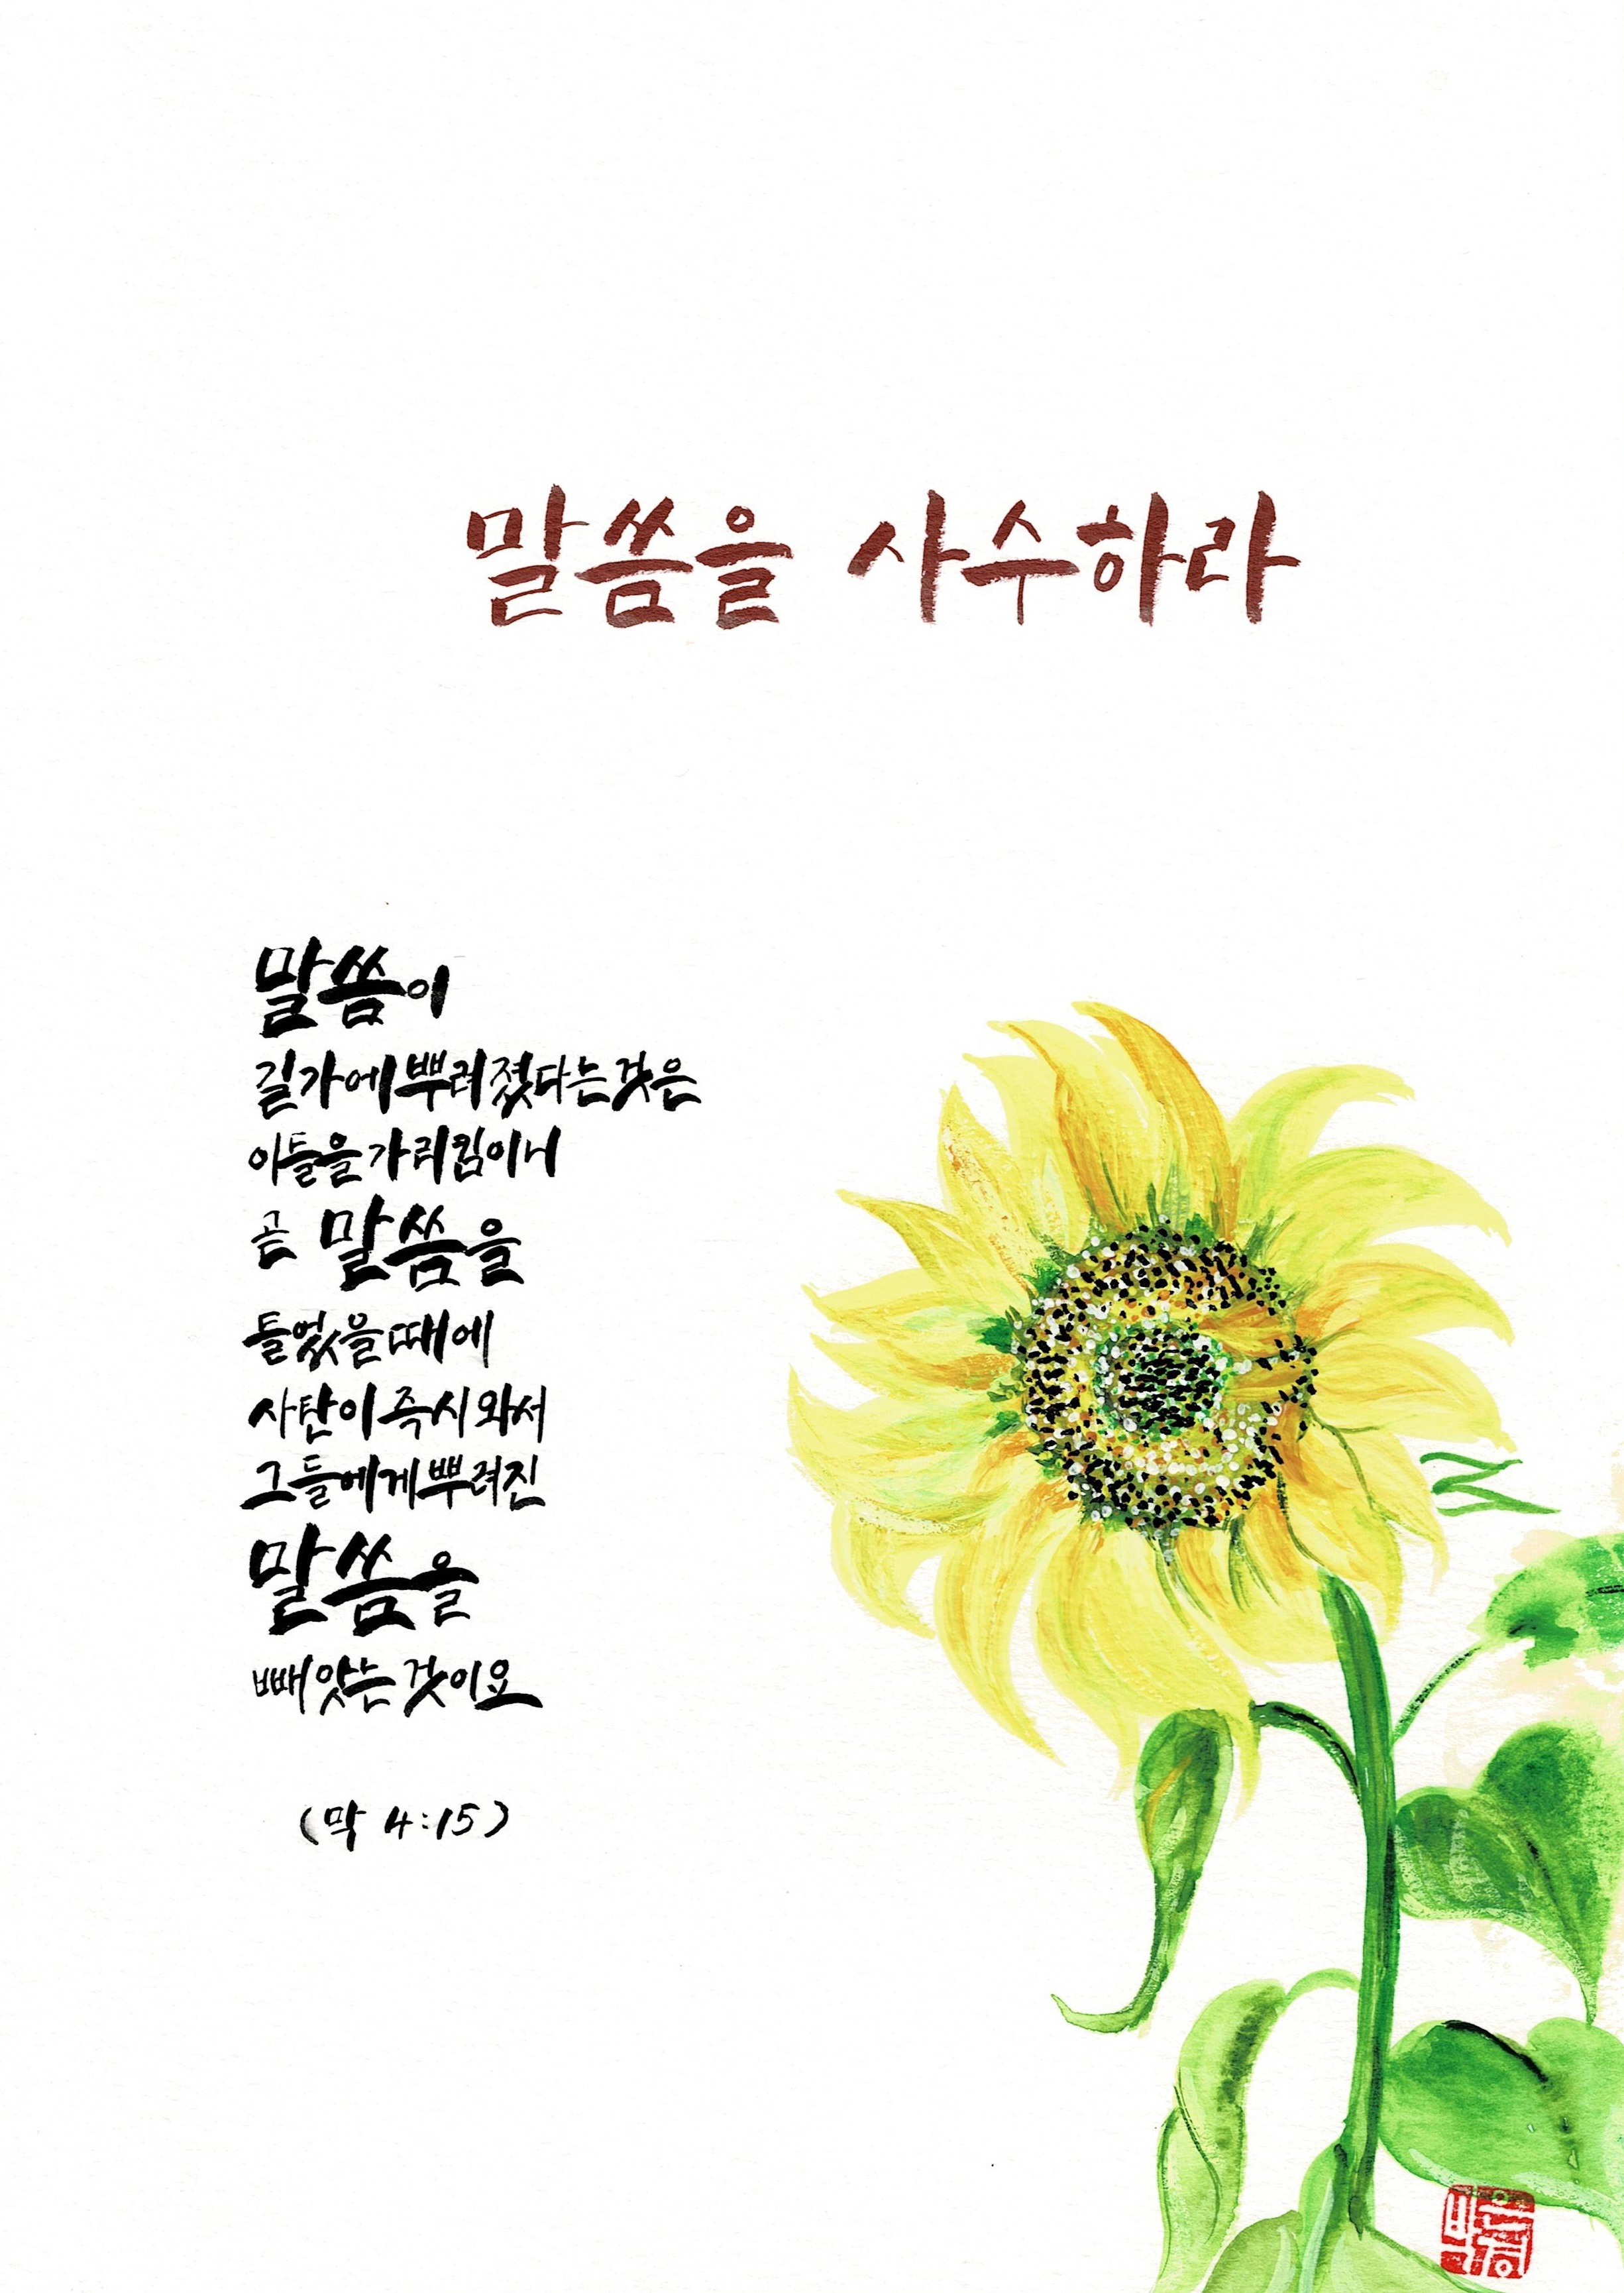 말씀을 사수하라
말씀이
길가에 뿌려졌다는 것은
이들을 가리킴이니
곧 말씀을
들었을 때에
사탄이 즉시 와서
그들에게 뿌려진
말씀을
빼앗는 것이요
(막 4:15)